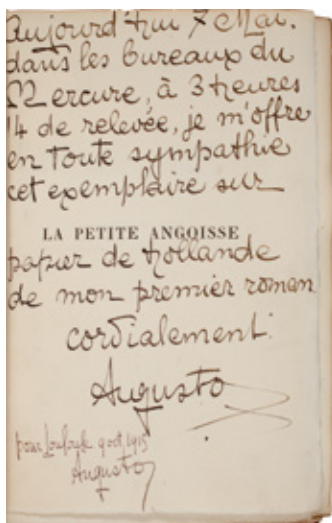 Aujourd'hui 7 Mai.
dans les bureaux du
Mercure, à 3 heures
1/4 de relevée, je m'offre
en toute sympathie
cet exemplaire sur
LA PETITE ANGOISSE
papier de hollande
de mon premier roman
cordialement.
Augusto
pour 1915
Augusto